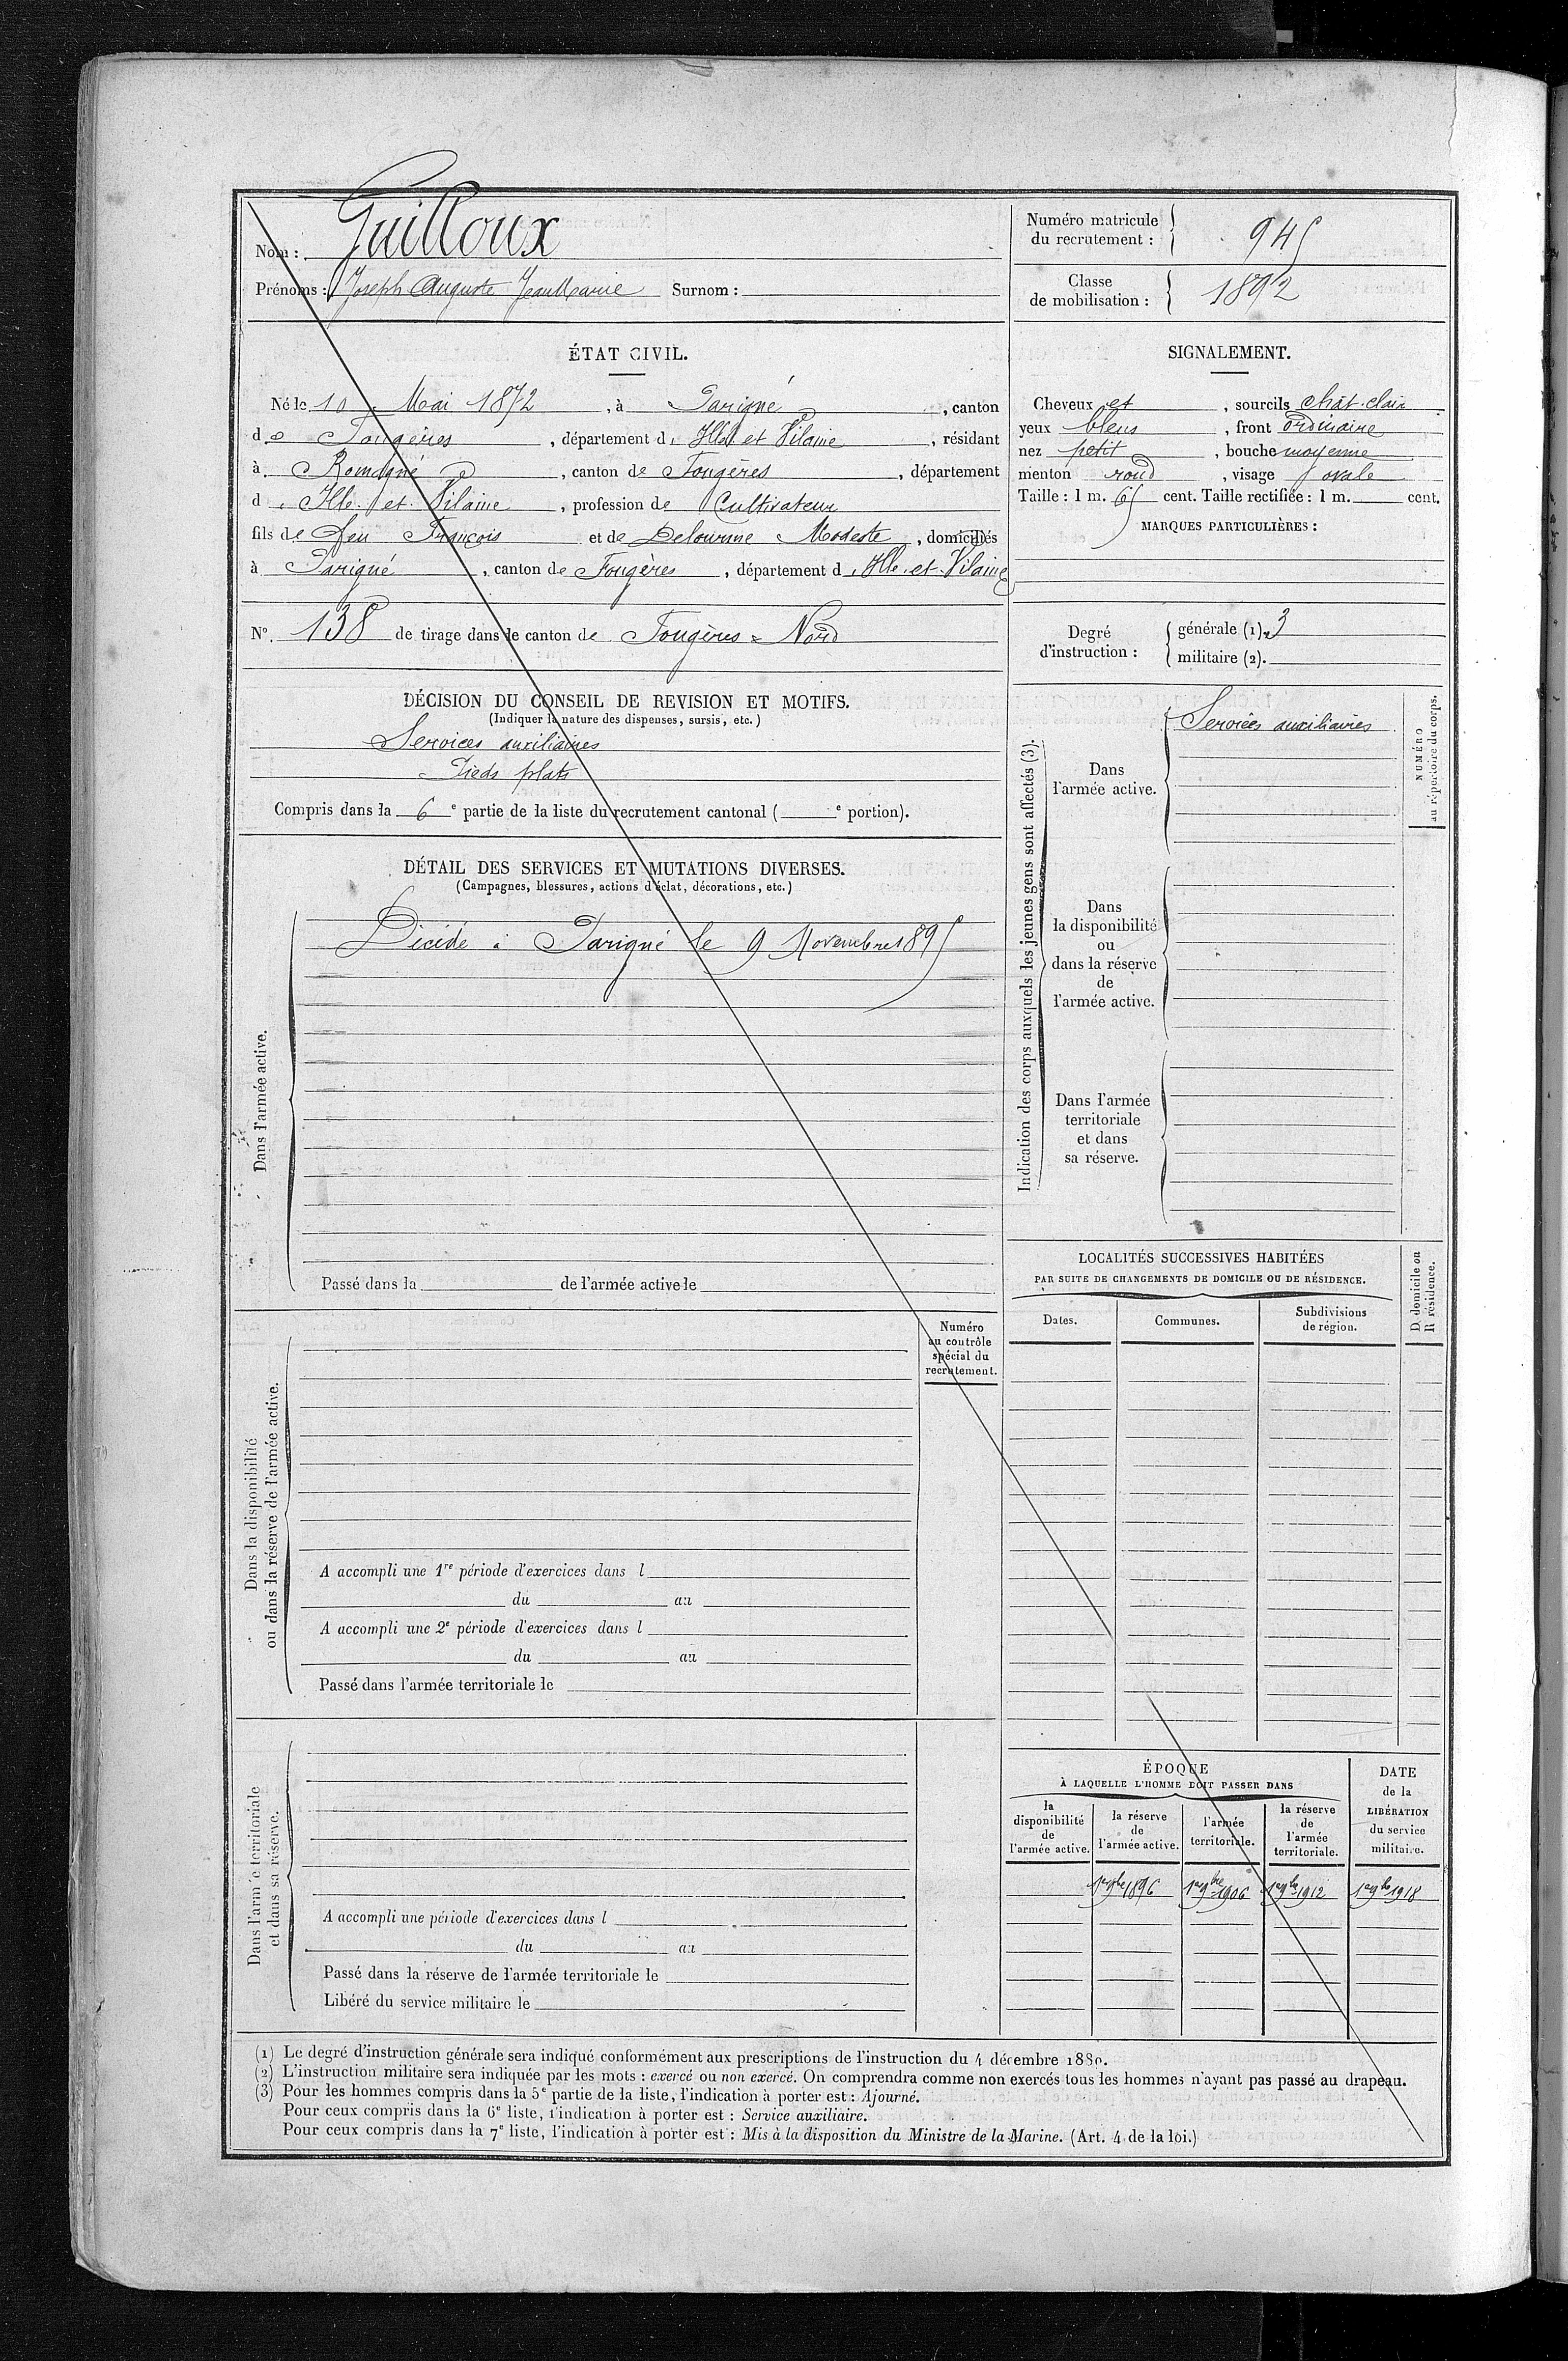 Nom : Guilloux
Prénoms : Joseph Auguste Jean Marie Surnom :
Numéro matricule du recrutement : 945
Classe de mobilisation : 1892
ÉTAT CIVIL.
Né le 10 Mai 1872, à Parigné, canton
de Fougères, département d'Ille et Vilaine, résidant
à Romagné, canton de Fougères, département
d'Ille et Vilaine, profession de Cultivateur
fils de feu François et de Delourme Modeste, domiciliés
à Parigné, canton de Fougères, département d'Ille et Vilaine
N° 138 de tirage dans le canton de Fougères - Nord
SIGNALEMENT.
Cheveux et, sourcils chât. clair
yeux bleus, front ordinaire
nez petit, bouche moyenne
menton rond, visage ovale
Taille : 1 m. 65 cent. Taille rectifiée : 1 m. cent.
MARQUES PARTICULIÈRES :
Degré d'instruction : générale (1). 3
militaire (2).
DÉCISION DU CONSEIL DE REVISION ET MOTIFS.
(Indiquer la nature des dispenses, sursis, etc.)
Services auxiliaires
Pieds plats
Compris dans la 6e partie de la liste du recrutement cantonal ( e portion).
DÉTAIL DES SERVICES ET MUTATIONS DIVERSES.
(Campagnes, blessures, actions d'éclat, décorations, etc.)
Dans l'armée active.
Décédé à Parigné le 9 Novembre 1895
Passé dans la de l'armée active le
Numéro
au contrôle
spécial du
recrutement.
Dans la disponibilité
ou dans la réserve de l'armée active.
A accompli une 1re période d'exercices dans l
du au
A accompli une 2e période d'exercices dans l
du au
Passé dans l'armée territoriale le
Dans l'armée territoriale
et dans sa réserve.
A accompli une période d'exercices dans l
du au
Passé dans la réserve de l'armée territoriale le
Libéré du service militaire le
Indication des corps auxquels les jeunes gens sont affectés (3).
NUMÉRO
au répertoire du corps.
Dans
l'armée active.
Services auxiliaires
Dans
la disponibilité
ou
dans la réserve
de
l'armée active.
Dans l'armée
territoriale
et dans
sa réserve.
LOCALITÉS SUCCESSIVES HABITÉES
PAR SUITE DE CHANGEMENTS DE DOMICILE OU DE RÉSIDENCE.
Dates. Communes. Subdivisions de région.
D domicile ou
R résidence.
ÉPOQUE
À LAQUELLE L'HOMME DOIT PASSER DANS
la disponibilité de l'armée active.
la réserve de l'armée active.
l'armée territoriale.
la réserve de l'armée territoriale.
DATE de la LIBÉRATION du service militaire.
1er 9bre 1896 1er 9bre 1906 1er 9bre 1912 1er 9bre 1918
(1) Le degré d'instruction générale sera indiqué conformément aux prescriptions de l'instruction du 4 décembre 1889.
(2) L'instruction militaire sera indiquée par les mots : exercé ou non exercé. On comprendra comme non exercés tous les hommes n'ayant pas passé au drapeau.
(3) Pour les hommes compris dans la 5e partie de la liste, l'indication à porter est : Ajourné.
Pour ceux compris dans la 6e liste, l'indication à porter est : Service auxiliaire.
Pour ceux compris dans la 7e liste, l'indication à porter est : Mis à la disposition du Ministre de la Marine. (Art. 4 de la loi.)